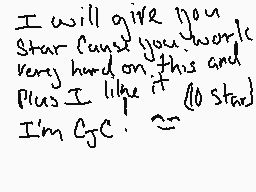 I will give you
Star Cause you work
very hard on this and
Plus I like it (10 star)
I'm CJC!